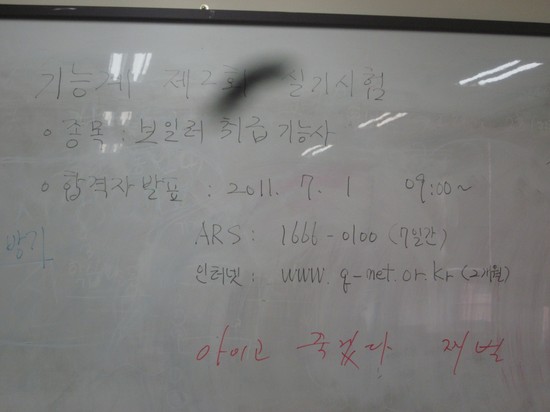 기능계 제2회 실기시험
○ 종목 : 보일러 취급 기능사
○ 합격자 발표 : 2011. 7. 1 09:00~
방가
ARS : 1666-0100 (7일간)
인터넷 : www.q-net.or.kr (2개월)
아이고 죽겠다 재벌